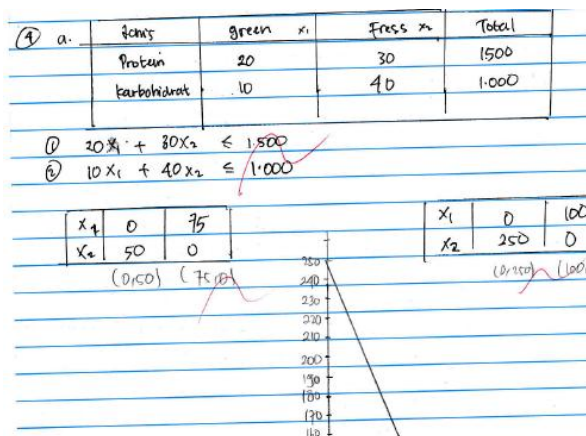 ④ a. Jenis green x₁ Fress x₂ Total
Protein 20 30 1500
karbohidrat 10 40 1.000
① 20x₁ + 30x₂ ≤ 1.500
② 10x₁ + 40x₂ ≤ 1.000
x₁ 0 75
x₂ 50 0
(0,50) (75,0)
x₁ 0 100
x₂ 250 0
(0,250) (100
250
240
230
220
210
200
190
180
170
160